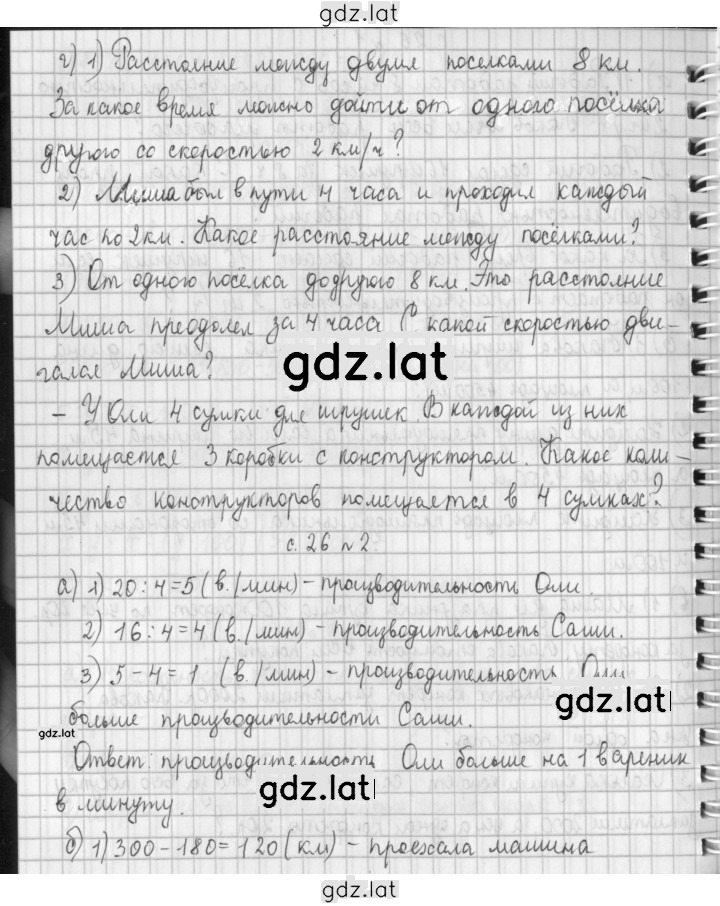 gdz.lat
г) 1) Расстояние между двумя поселками 8 км.
За какое время можно дойти от одного посёлка
другого со скоростью 2 км/ч?
2) Миша был в пути 4 часа и проходил каждый
час по 2 км. Какое расстояние между посёлками?
3) От одного посёлка до другого 8 км. Это расстояние
Миша преодолел за 4 часа С какой скоростью дви-
гался Миша?
gdz.lat
- У Оли 4 сумки для игрушек. В каждой из них
помещается 3 коробки с конструктором. Какое коли-
чество конструкторов помещается в 4 сумках?
с. 26 №2
а) 1) 20 : 4 = 5 (в./мин) - производительность Оли.
2) 16 : 4 = 4 (в./мин) - производительность Саши.
3) 5 - 4 = 1 (в./мин) - производительность Оли
gdz.lat
больше производительности Саши.
gdz.lat
Ответ: производительность Оли больше на 1 вареник
gdz.lat
в минуту.
б) 1) 300 - 180 = 120 (км) - проехала машина
gdz.lat